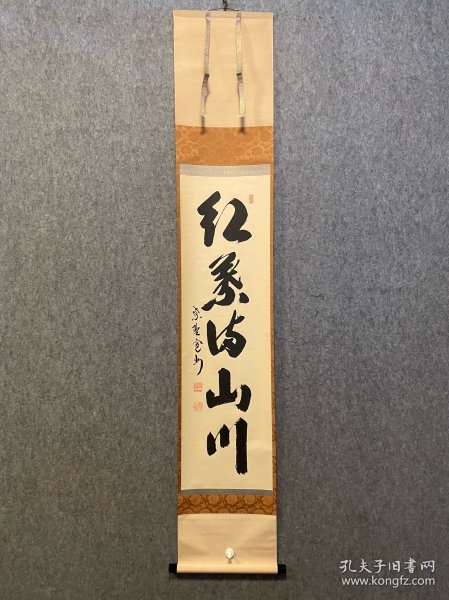 红叶满山川
孔夫子旧书网
www.kongfz.com